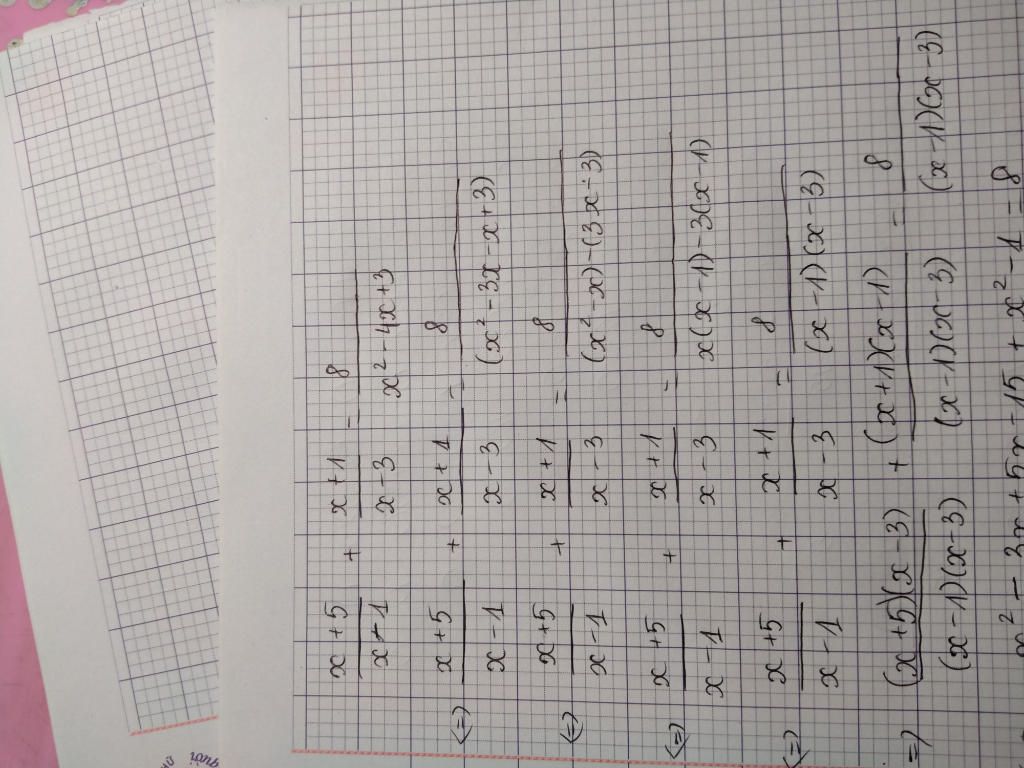 (x+5)/(x-1) + (x+1)/(x-3) = 8/(x²-4x+3)
(=) (x+5)/(x-1) + (x+1)/(x-3) = 8/(x²-3x-x+3)
(=) (x+5)/(x-1) + (x+1)/(x-3) = 8/((x²-x)-(3x-3))
(=) (x+5)/(x-1) + (x+1)/(x-3) = 8/(x(x-1)-3(x-1))
(=) (x+5)/(x-1) + (x+1)/(x-3) = 8/((x-1)(x-3))
=) ((x+5)(x-3))/((x-1)(x-3)) + ((x+1)(x-1))/((x-1)(x-3)) = 8/((x-1)(x-3))
x²-3x+5x-15+x²-1=8
người